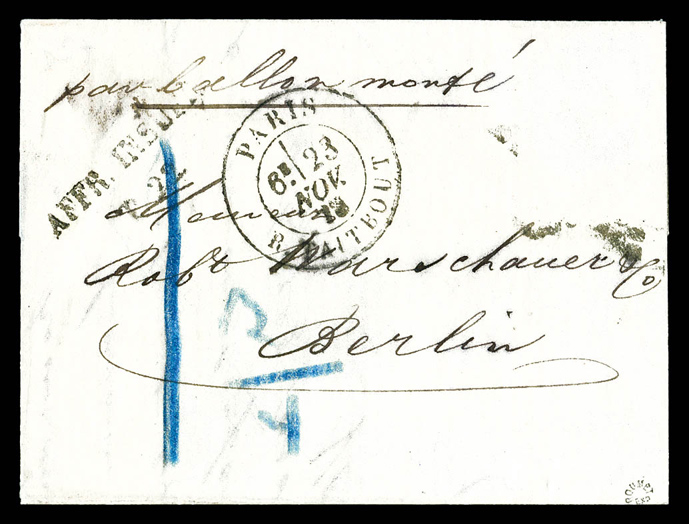 par ballon monté
AFFR. INSUF.
PARIS
6E 23
NOV.
R. TAITBOUT
Messieurs
Robt Warschauer & Co
Berlin
3
4